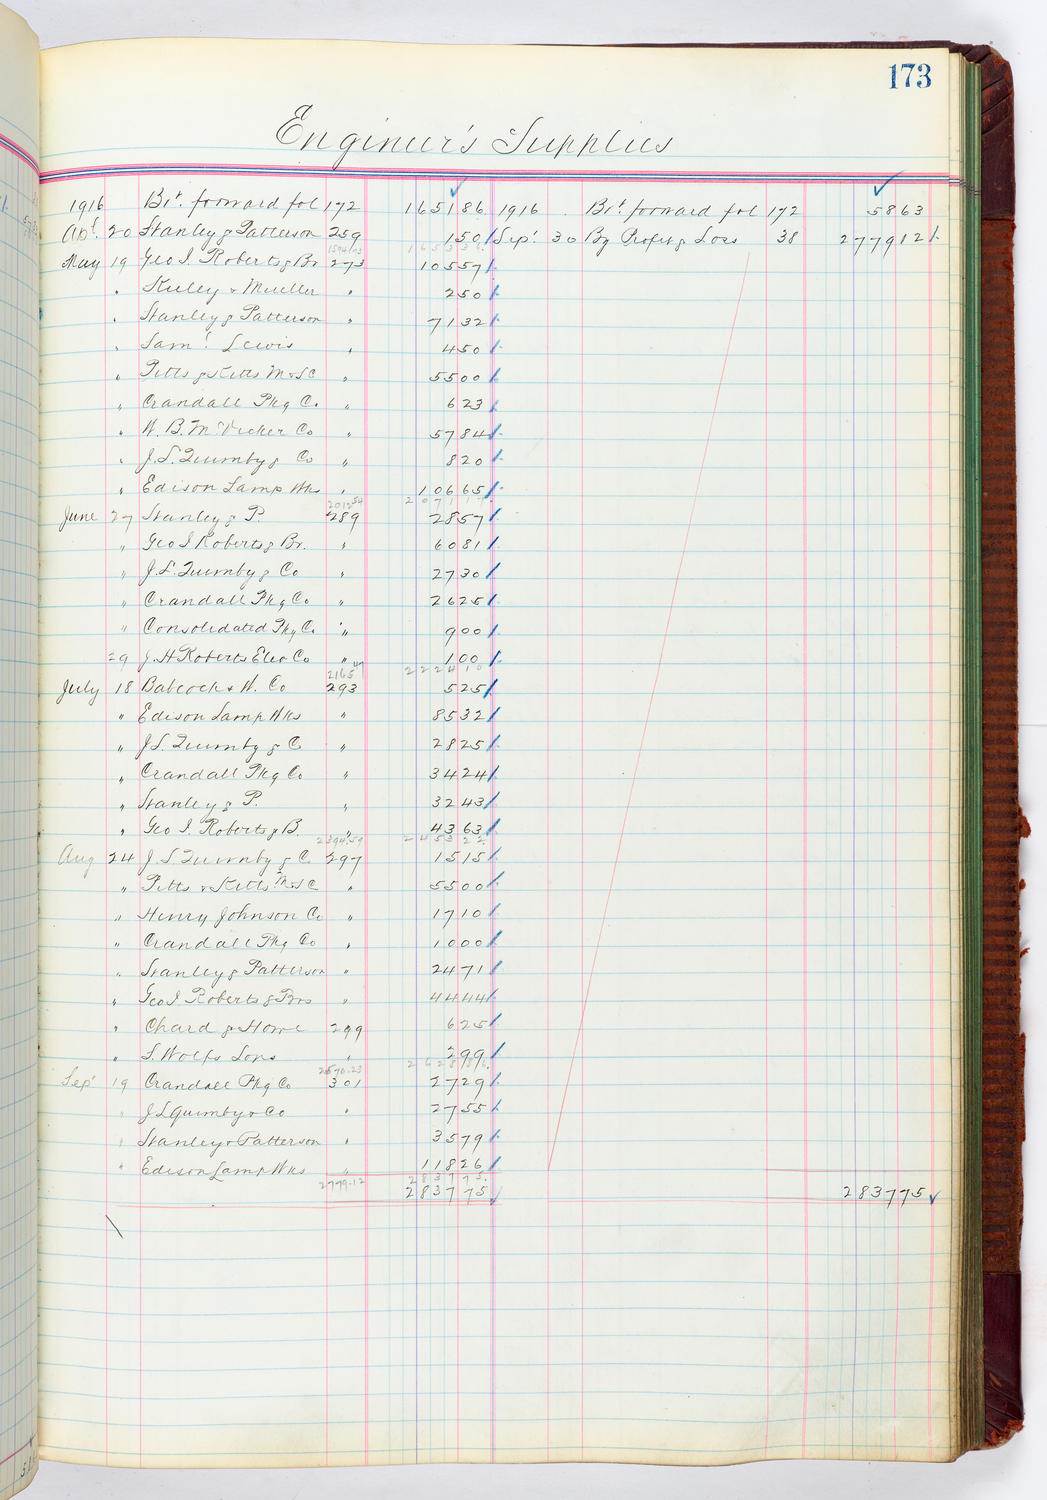 173
Engineer's Supplies
1916 Brt. forward fol 172 165186 1916 Brt. forward fol 172 5863
Apl. 20 Stanley & Patterson 259 150 Sep! 30 By Profit & Loss 38 277912
1594.73 165336
May 19 Geo I. Roberts & Br 273 10557
" Kelley & Mueller " 250
" Stanley & Patterson " 7132
" Saml. Lewis " 450
" Pitts & Kitts M & S C " 5500
" Crandall Pkg C. " 623
" W. B. McVicker Co " 5784
" J. L. Quimby & Co " 820
" Edison Lamp Wks " 10665
2012.54 207117
June 27 Stanley & P. 289 2857
" Geo I Roberts & Br. " 6081
" J. L. Quimby & Co " 2730
" Crandall Pkg Co " 2625
" Consolidated Pkg C. " 900
29 J. H Roberts Elec Co " 100
2165.47 222410
July 18 Babcock & W. Co 293 525
" Edison Lamp Wks " 8532
" J L. Quimby & C " 2825
" Crandall Pkg Co " 3424
" Stanley & P. " 3243
" Geo I. Roberts & B. " 4363
2394.59 245322
Aug 24 J L Quimby & C. 297 1515
" Pitts & Kitts M & S C " 5500
" Henry Johnson Co " 1710
" Crandall Pkg Co " 1000
" Stanley & Patterson " 2471
" Geo I Roberts & Bros " 4444
" Chard & Howe 299 625
" S. Wolfs Sons " 299
2570.23 262886
Sep! 19 Crandall Pkg Co 301 2729
" J L Quimby & Co " 2755
" Stanley & Patterson " 3579
" Edison Lamp Wks " 11826
2779.12 283775
283775 283775